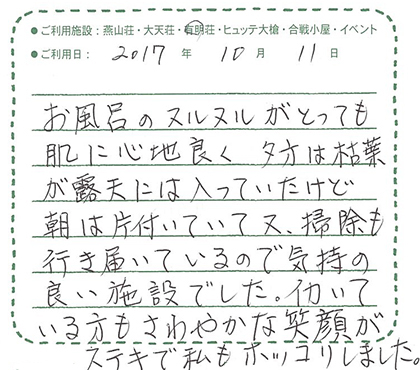 ●ご利用施設：燕山荘・大天荘・有明荘・ヒュッテ大槍・合戦小屋・イベント
●ご利用日： 2017 年 10 月 11 日
お風呂のヌルヌルがとっても
肌に心地良く 夕方は枯葉
が露天には入っていたけど
朝は片付いていて又、掃除も
行き届いているので気持の
良い施設でした。仂いて
いる方もさわやかな笑顔が
ステキで私もホッコリしました。